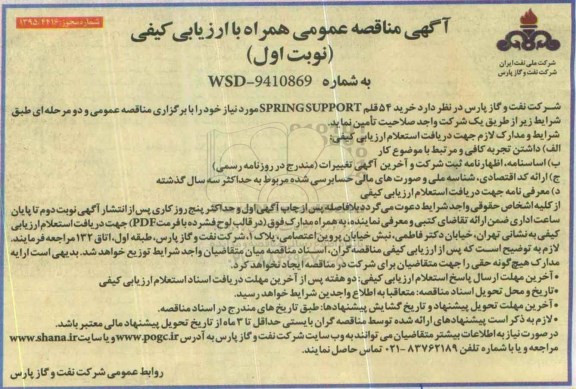 شماره مجوز: ۱۳۹۵/۴۴۱۶
آگهی مناقصه عمومی همراه با ارزیابی کیفی
(نوبت اول)
شرکت ملی نفت ایران
شرکت نفت و گاز پارس
به شماره WSD-9410869
شرکت نفت و گاز پارس در نظر دارد خرید ۵۴ قلم SPRING SUPPORT مورد نیاز خود را با برگزاری مناقصه عمومی و دو مرحله ای طبق
شرایط زیر از طریق یک شرکت واجد صلاحیت تأمین نماید.
شرایط و مدارک لازم جهت دریافت استعلام ارزیابی کیفی:
الف) داشتن تجربه کافی و مرتبط با موضوع کار
ب) اساسنامه، اظهارنامه ثبت شرکت و آخرین آگهی تغییرات (مندرج در روزنامه رسمی)
ج) ارائه کد اقتصادی، شناسه ملی و صورت های مالی حسابرسی شده مربوط به حداکثر سه سال گذشته
د) معرفی نامه جهت دریافت استعلام ارزیابی کیفی
از کلیه اشخاص حقوقی واجد شرایط دعوت می گردد بلافاصله پس از چاپ آگهی اول و حداکثر پنج روز کاری پس از انتشار آگهی نوبت دوم تا پایان
ساعت اداری ضمن ارائه تقاضای کتبی و معرفی نماینده، به همراه مدارک فوق (در قالب لوح فشرده با فرمت PDF) جهت دریافت استعلام ارزیابی
کیفی به نشانی تهران، خیابان دکتر فاطمی، نبش خیابان پروین اعتصامی، پلاک ۱، شرکت نفت و گاز پارس، طبقه اول، اتاق ۱۳۲ مراجعه فرمایند.
لازم به توضیح است که پس از ارزیابی کیفی مناقصه گران، اسناد مناقصه میان متقاضیان واجد شرایط توزیع خواهد شد. بدیهی است ارایه
مدارک هیچ گونه حقی را جهت متقاضیان برای شرکت در مناقصه ایجاد نخواهد کرد.
• آخرین مهلت ارسال پاسخ استعلام ارزیابی کیفی: دو هفته پس از آخرین مهلت دریافت اسناد استعلام ارزیابی کیفی
• تاریخ و محل تحویل اسناد مناقصه: متعاقبا به اطلاع واجدین شرایط خواهد رسید.
• آخرین مهلت تحویل پیشنهاد و تاریخ گشایش پیشنهادها: طبق تاریخ های مندرج در اسناد مناقصه.
• لازم به ذکر است پیشنهادهای ارائه شده توسط مناقصه گران بایستی حداقل تا ۳ ماه از تاریخ تحویل پیشنهاد مالی معتبر باشد.
در صورت نیاز به اطلاعات بیشتر متقاضیان می توانند به وب سایت شرکت نفت و گاز پارس به آدرس www.pogc.ir و یا سایت www.shana.ir
مراجعه و یا با شماره تلفن ۸۳۷۶۲۱۸۹-۰۲۱ تماس حاصل نمایند.
روابط عمومی شرکت نفت و گاز پارس